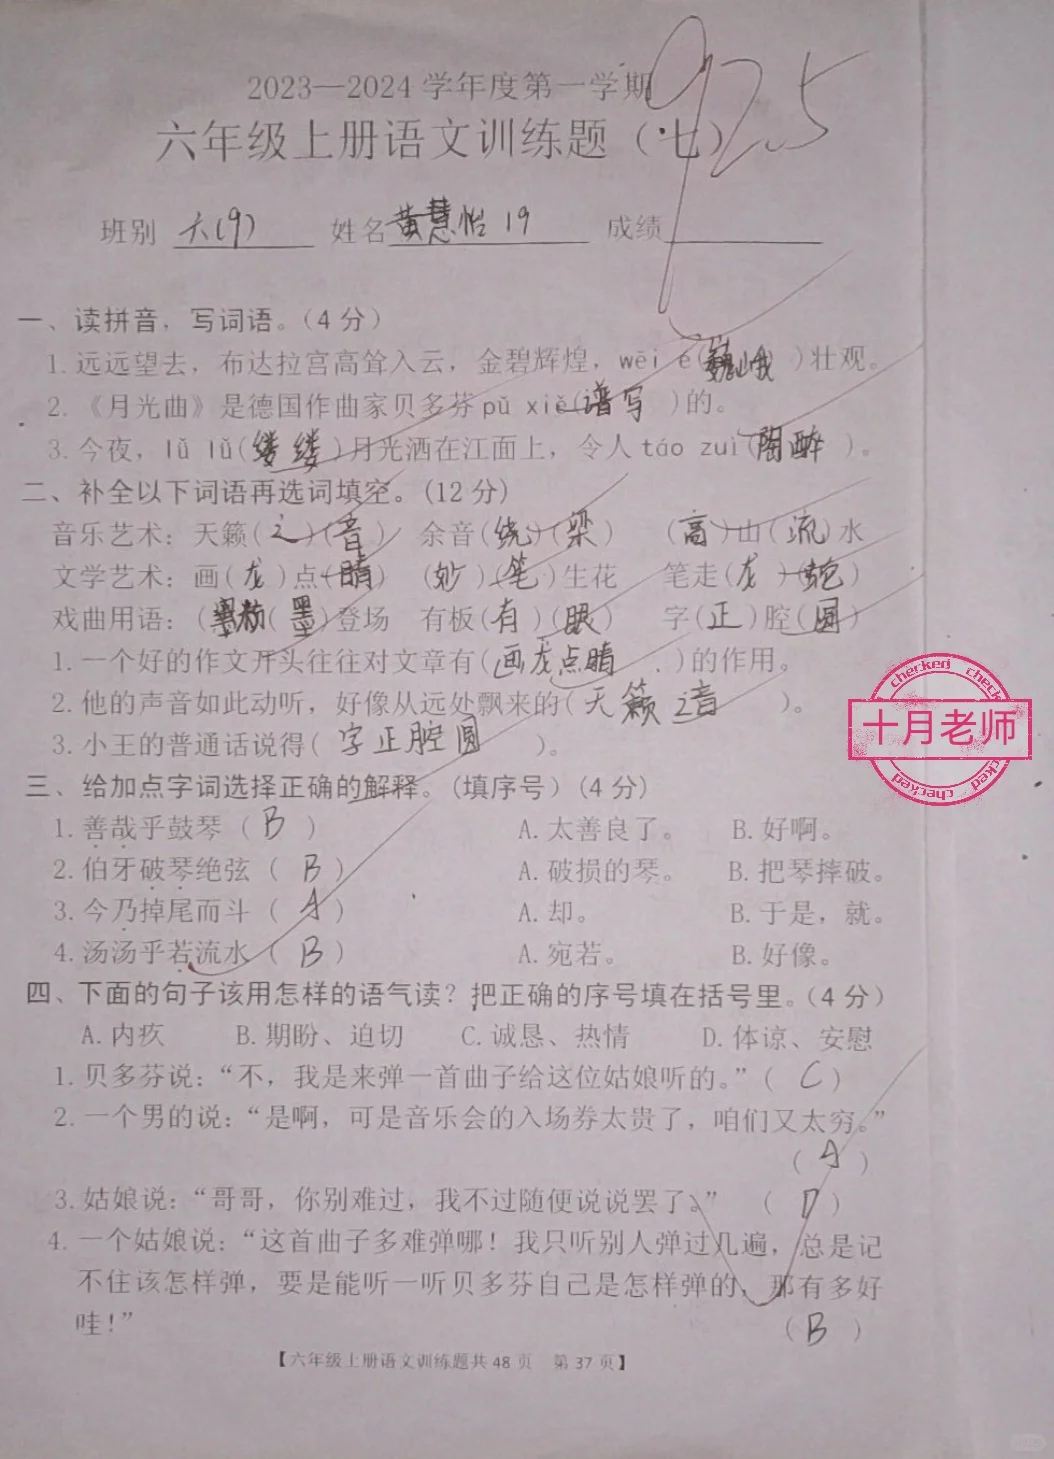 92.5
2023—2024学年度第一学期
六年级上册语文训练题（七）
班别 六(9) 姓名 黄慧怡 19 成绩
一、读拼音，写词语。（4分）
1.远远望去，布达拉宫高耸入云，金碧辉煌，wēi é(巍峨)壮观。
2.《月光曲》是德国作曲家贝多芬pǔ xiě(谱写)的。
3.今夜，lǚ lǚ(缕缕)月光洒在江面上，令人táo zuì(陶醉)。
二、补全以下词语再选词填空。(12分)
音乐艺术：天籁(之)(音) 余音(绕)(梁) (高)山(流)水
文学艺术：画(龙)点(睛) (妙)(笔)生花 笔走(龙)(蛇)
戏曲用语：(粉)(墨)登场 有板(有)(眼) 字(正)腔(圆)
1.一个好的作文开头往往对文章有(画龙点睛)的作用。
2.他的声音如此动听，好像从远处飘来的(天籁之音)。
3.小王的普通话说得(字正腔圆)。
三、给加点字词选择正确的解释。(填序号)(4分)
1.善哉乎鼓琴（B） A.太善良了。 B.好啊。
2.伯牙破琴绝弦（B） A.破损的琴。 B.把琴摔破。
3.今乃掉尾而斗（A） A.却。 B.于是，就。
4.汤汤乎若流水（B） A.宛若。 B.好像。
四、下面的句子该用怎样的语气读？把正确的序号填在括号里。（4分）
A.内疚 B.期盼、迫切 C.诚恳、热情 D.体谅、安慰
1.贝多芬说：“不，我是来弹一首曲子给这位姑娘听的。”（C）
2.一个男的说：“是啊，可是音乐会的入场券太贵了，咱们又太穷。”
（A）
3.姑娘说：“哥哥，你别难过，我不过随便说说罢了。”（D）
4.一个姑娘说：“这首曲子多难弹哪！我只听别人弹过几遍，总是记
不住该怎样弹，要是能听一听贝多芬自己是怎样弹的，那有多好
哇！” （B）
【六年级上册语文训练题共48页 第37页】
checked checked
十月老师
checked checked